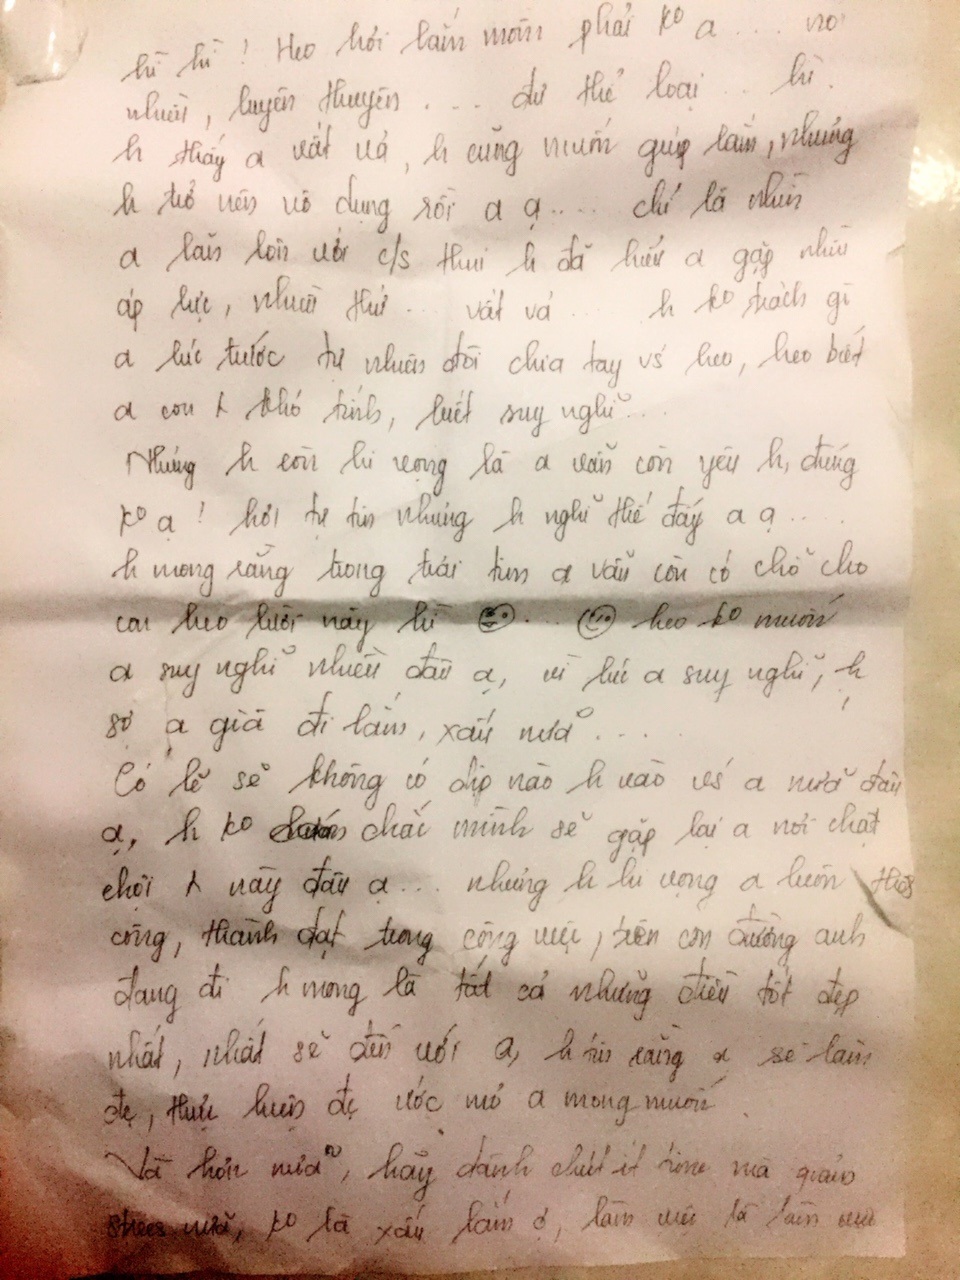 hì hì! Heo hỏi lắm mồm phải ko a .... nói
nhiều, luyên thuyên .... đủ thể loại .. hì.
h thấy a vất vả, h cũng muốn giúp lắm, nhưng
h trở nên vô dụng rồi a ạ .... chỉ là nhìn
a lăn lộn với c/s thui h đã hiểu a gặp nhiều
áp lực, nhiều thứ ... vất vả .... h ko trách gì
a lúc trước tự nhiên đòi chia tay vs heo, heo biết
a con khó tính, biết suy nghĩ ...
Nhưng h còn hi vọng là a vẫn còn yêu h, đúng
ko ạ! hơi tự tin nhưng h nghĩ thế đấy a ạ ...
h mong rằng trong trái tim a vẫn còn có chỗ cho
con heo lười này hì ... heo ko muốn
a suy nghĩ nhiều đâu ạ, vì lúc a suy nghĩ, h
sợ a già đi lắm, xấu nữa ....
Có lẽ sẽ không có dịp nào h vào vs a nữa đâu
ạ, h ko chắc mình sẽ gặp lại a nơi chật
chội này đâu ạ ... nhưng h hi vọng a luôn
công, thành đạt trong công việc, trên con đường anh
đang đi h mong là tất cả những điều tốt đẹp
nhất, nhất sẽ đến với a, h tin rằng a sẽ làm
đc, thực hiện đc ước mơ a mong muốn.
Và hơn nữa, hãy dành chút ít time mà
nữa, ko là xấu lắm ó, làm việc là làm